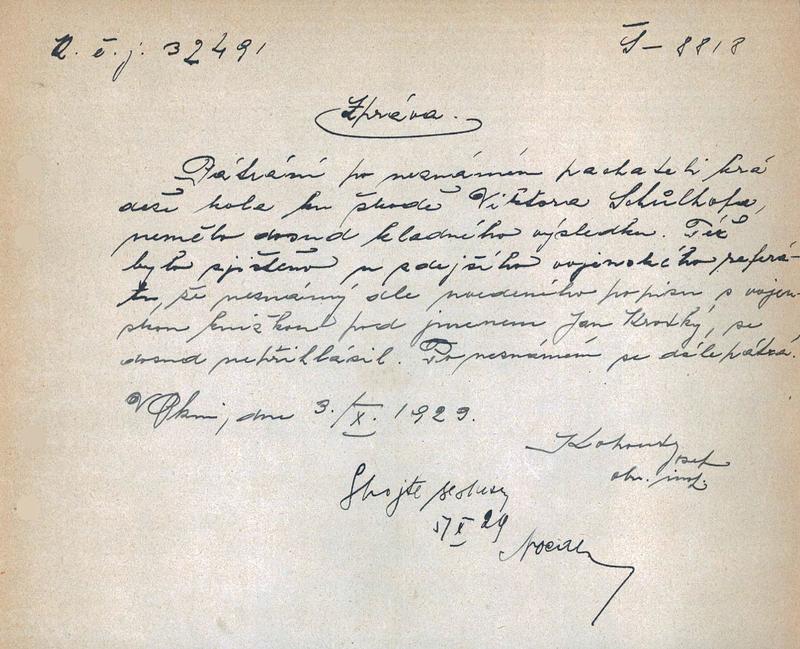 R. č. j. 32491
Š - 8818
Zpráva.
Pátrání po neznámém pachateli krá
deže kola ku škodě Viktora Schůlhofa,
nemělo dosud kladného výsledku. Též
bylo zjištěno u zdejšího vojenského referá-
tu, že neznámý dle uvedeného popisu s vojen-
skou knížkou pod jmenem Jan Krotký, se
dosud nepřihlásil. Po neznámém se dále pátrá.
V dne 3./X. 1929.
Kohout Josef
obv. insp.
Spojte
5/X 29